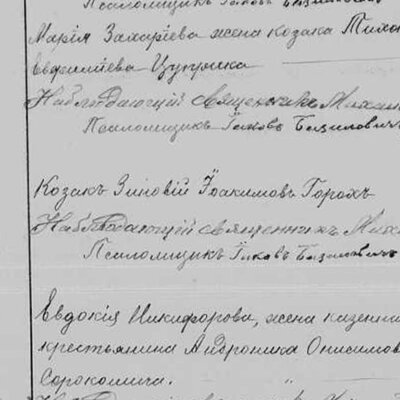 Псаломщикъ Іаковъ Базилевичъ
Марія Захаріева жена козака Тихо
Евфиміева Цуприка
Наблюдающій священникъ Михаи
Псаломщикъ Іаковъ Базилевичъ
Козакъ Зиновій Іоакимовъ Горохъ
Наблюдающій священникъ Мих
Псаломщикъ Іаковъ Базилевичъ
Евдокія Никифорова, жена казенна
крестьянина Андроника Онисимов
Сороколита.